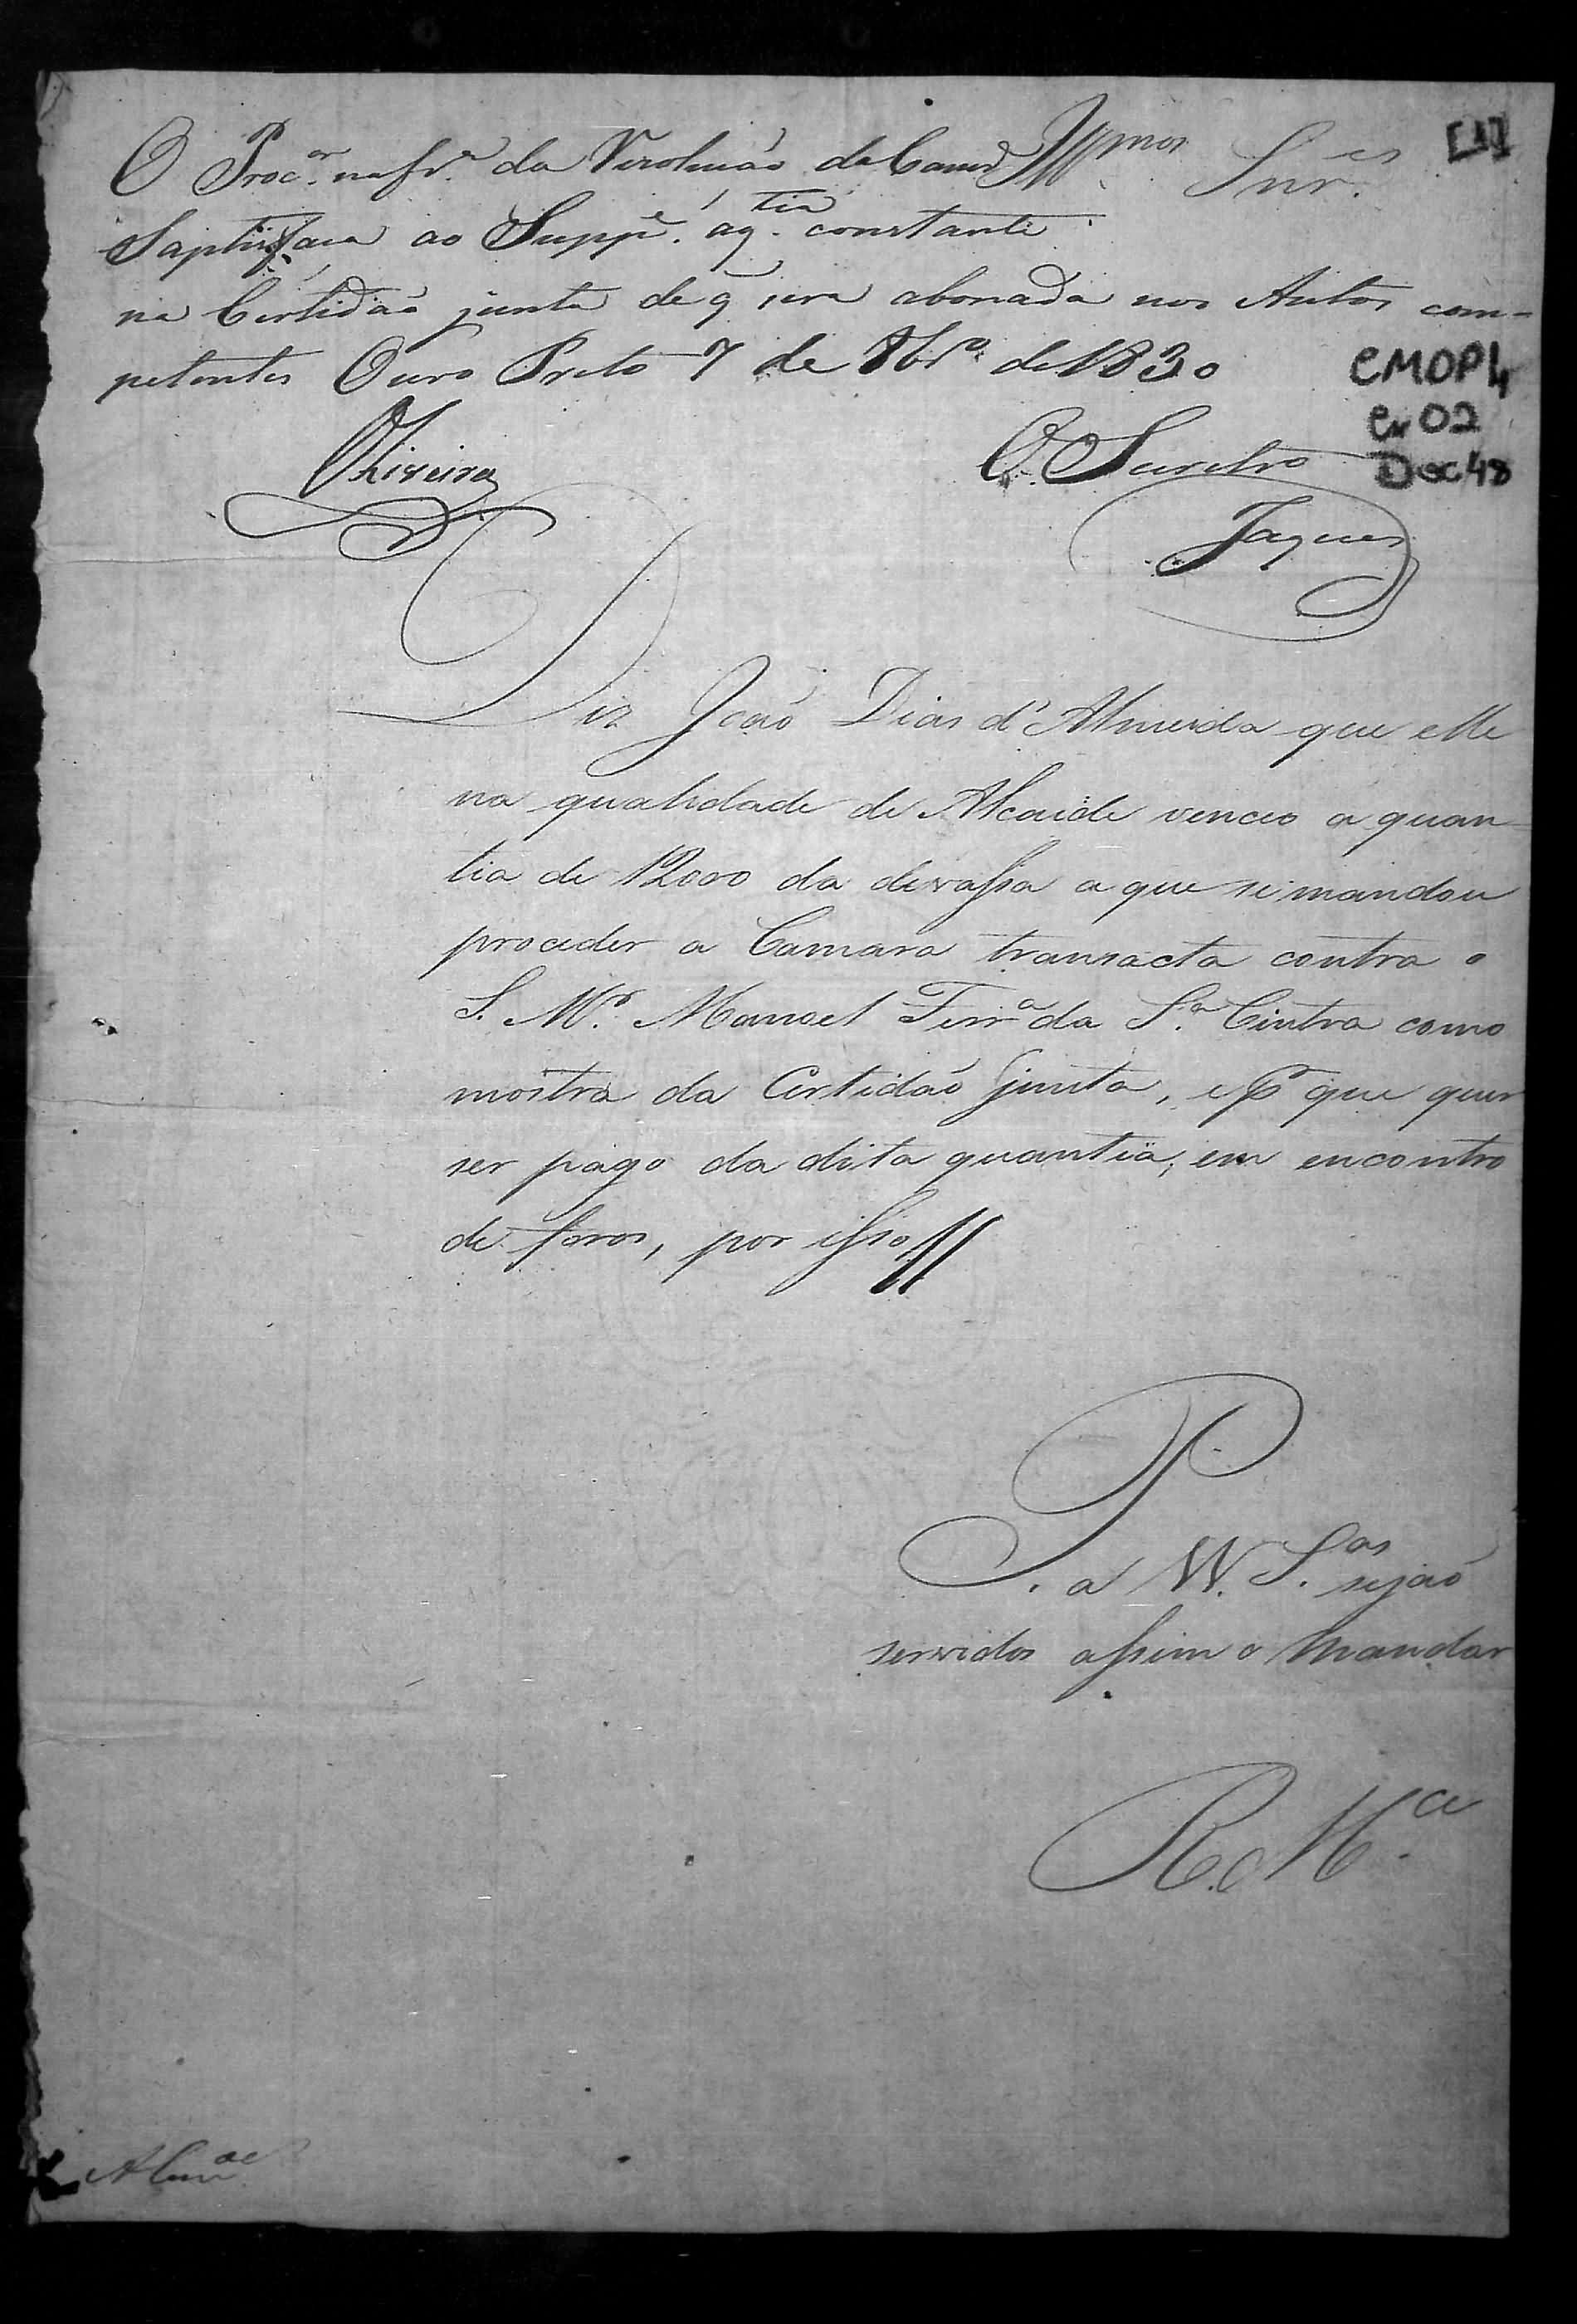 O Proc.or na fr.ª da Rezolução da Camr.ª Ill.mos Snr.es [1]
Saptisfaça ao Supp.e a q.tia constante
na Certidão junta de q̃ sera abonada nos Autos com-
petentes Ouro Preto 7 de 8br.º de 1830
CMOP 4
Cx 02
Doc 48
Oliveira
Jaques
Diz João Dias d'Almeida que elle
na qualidade de Alcaide venceo a quan
tia de 12000 da devassa a que se mandou
proceder a Camara transacta contra o
S. M.r Manoel Ferr.ª da S.ª Cintra como
mostra da Certidão junta, e p que quer
ser pago da dita quantia, em encontro
de foros, por isso //
P. a VV. S.as sejão
servidos assim o mandar
R. M.ce